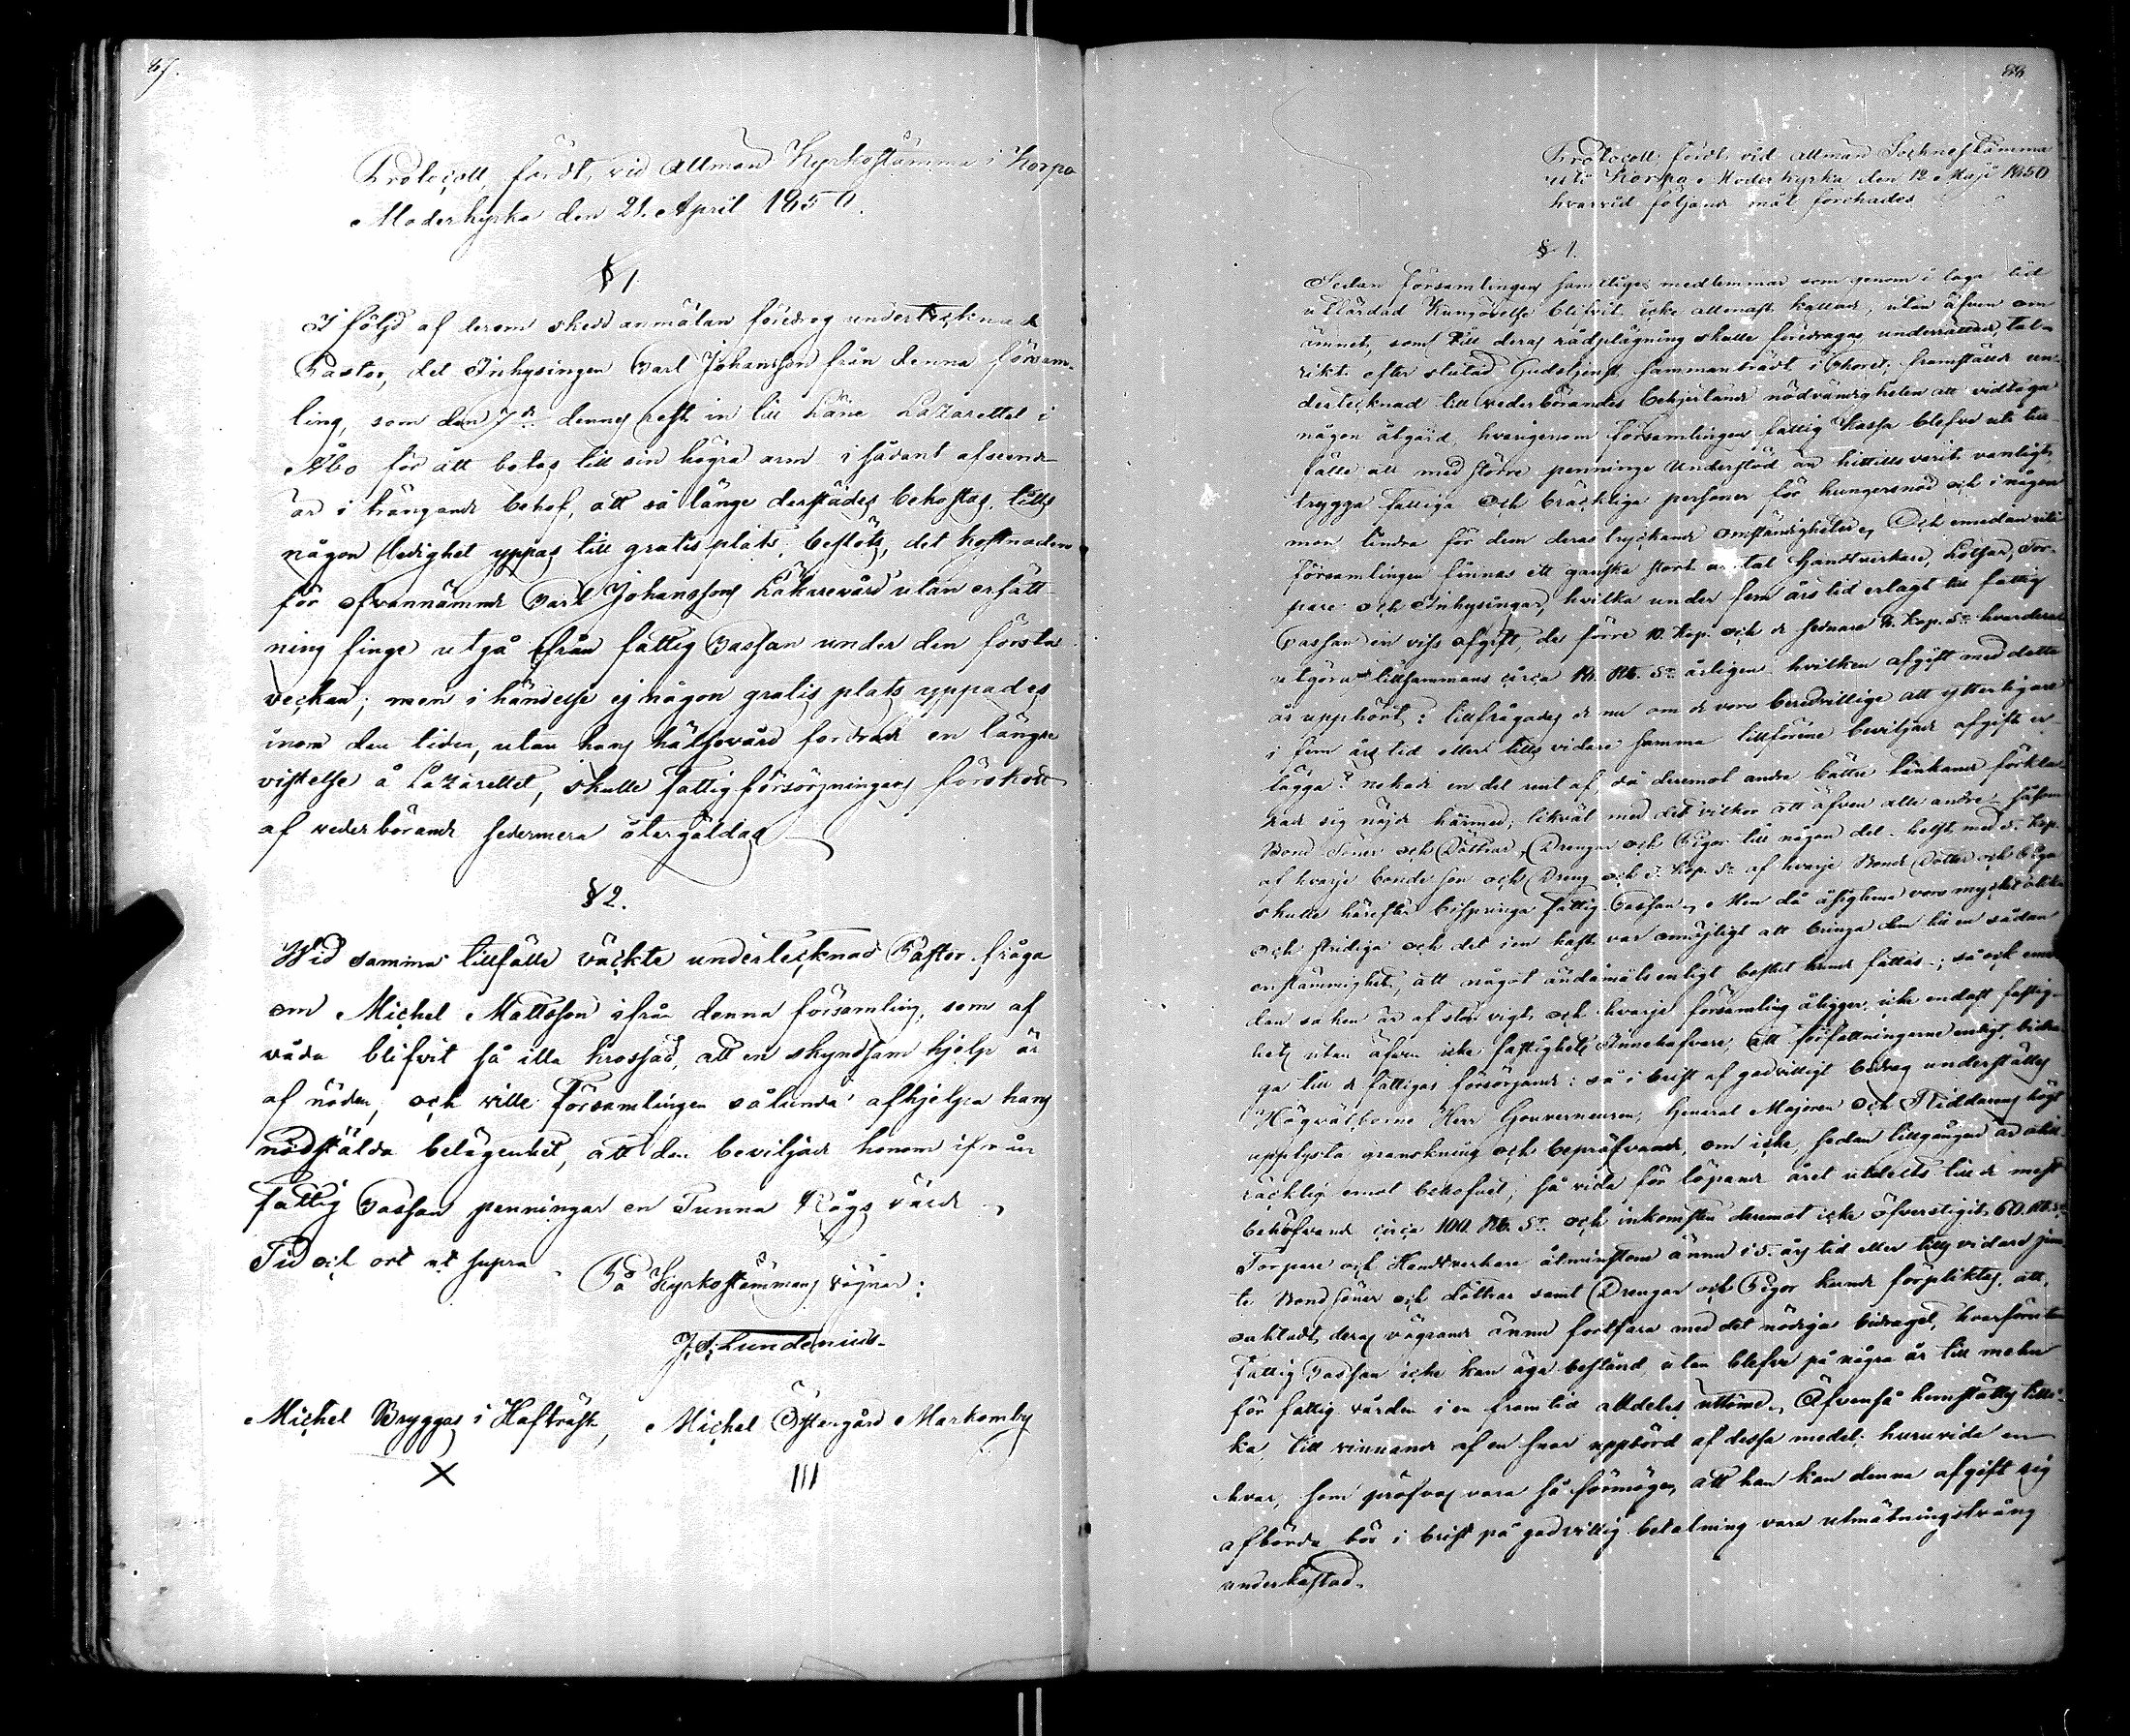 87.
Protocoll, fördt, vid allmän Kyrkostämma i Korpo
Moderkyrka den 21. April 1850.
§ 1.
I följd af derom skedd anmälan föredrog undertecknade
Pastor, det Inhysingen Carl Johansson från denna försam-
ling, som den 7de dennes rest in till Läne Lazarettet i
Åbo för att botas till sin högra arm i sådant afseende
är i trängande behof, att så länge derstädes bekostas, tills
någon ledighet yppas till gratis plats; beslöts, det kostnaden
för ofvannämnde Carl Johanssons Läkarevård utan ersätt-
ning finge utgå från fattig Cassan under den första
veckan; men i händelse ej någon gratis plats yppades
inom den tiden, utan hans hälsovård fordrade en längre
vistelse å Lazarettet, skulle fattigförsörjningens förskott
af vederbörande sedermera återgäldas
§ 2.
Wid samma tillfälle väckte undertecknad Pastor fråga
om Michel Mattsson ifrån denna församling, som af
våda blifvit så illa krossad, att en skyndsam hjelp är
af nöden, och ville Församlingen sålunda afhjelpa hans
nödstälda belägenhet, att den beviljade honom ifrån
fattig Cassan penningar en Tunna Rågs värde
Tid och ort ut supra
På Kyrkostämmans vägnar:
J. S. Lundenius
Michel Bryggas i Hafträsk, Michel Östergård Markomby
X III
88
Protocoll, fördt, vid allmän Sochnestämma
uti Korpo Moderkyrka den 12 Maji 1850
hvarvid följande mål förehades
§ 1.
Sedan församlingens samtliga medlemmar som genom i laga tid
utfärdad Kungörelse blifvit icke allenast kallade, utan äfven om
ämnet, som till deras rådplägning skulle föredragas, underrättade, tal-
rikt efter slutad Gudstjenst, sammanträdt i Choret; framställde un-
dertecknad till vederbörandes behjertande nödvändigheten att vidtaga
någon åtgärd, hvarigenom församlingens fattig Kassa blefve uti till-
fälle att med större penninge Understöd än hittills varit vanligt,
trygga fattiga och bräckliga personer för hungersnöd och i någon
mon lindra för dem deras tryckande omständigheter. Och emedan uti
församlingen finnas ett ganska stort antal Handtverkare, Lotsar, Tor-
pare och Inhysingar, hvilka under fem års tid erlagt till fattig
Cassan en viss afgift, de förre 10. Kop. och de sednare Kop. Sr hvardera
utgörande tillsammans circa Rb. Sr årligen hvilken afgift med detta
år upphört: tillfrågades de nu om de voro beredvillige att ytterligare
i fem års tid eller tills vidare samma tillförene beviljade afgift er-
lägga? nekade en del rent af, då deremot andra bättre tänkande förkla-
rade sig nöjde härmed; likväl med det vilkor att äfven alla andre såsom
Bond Söner och Döttrar, Drengar och Pigor till någon del, helst med 5. Kop.
af hvarje bonde son och Dreng och 3. Kop. Sr af hvarje Bonde Dotter och Piga
skulle härefter bispringa fattig Cassan. Men då åsigterna voro mycket olika
och stridiga och det i en hast var omöjligt att bringa dem till en sådan
enstämmighet, att något ändamålsenligt beslut kunde fattas; så och eme-
dan saken är af stor vigt, och hvarje församling åligger, icke endast fastig-
hets utan äfven icke fastighets Innehafvare, att författningarne enligt, bidra-
ga till de fattigas försörjande: så i brist af godvilligt bidrag underställes
Högvälborne Herr Gouverneuren, General Majoren och Riddarens högt
upplysta granskning och bepröfvande, om icke, sedan tillgången är otill-
räcklig emot behofvet, så vida för löpande året utdelts till de mest
behöfvande circa 100. Rb. Sr och inkomsten deremot icke öfverstigit 60. Rb. Sr
Torpare och Handtverkare åtminstone ännu i 5. års tid eller tills vidare jem-
te Bondsöner och Döttrar samt Drengar och Pigor kunde förpliktas, att,
oaktadt, deras vägrande ännu fortfara med det nödiga bidraget, hvarförutan
fattig Cassan icke kan äga bestånd, utan blefve på några år till mehn
för fattig vården i en framtid alldeles uttömd. Äfvenså hemställes tilli-
ka, till vinnande af en snar uppbörd af dessa medel; huruvida en
hvar, som pröfvas vara så förmögen, att han kan denna afgift sig
afbörda bör i brist på godvillig betalning vara utmätningstvång
underkastad.